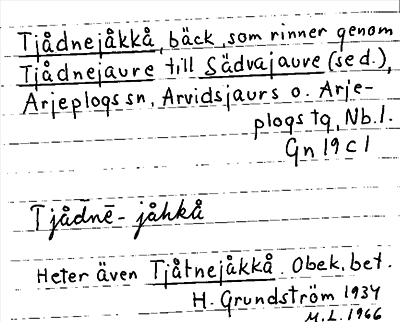 Tjådnejåkkå, bäck, som rinner genom
Tjådnejaure till Sädvajaure (se d.),
Arjeplogs sn, Arvidsjaurs o. Arje-
plogs tg, Nb. l.
Gn 19 c 1
Tjådnē-jåhkå
Heter även Tjåtnejåkkå. Obek. bet.
H. Grundström 1934
M.L. 1966